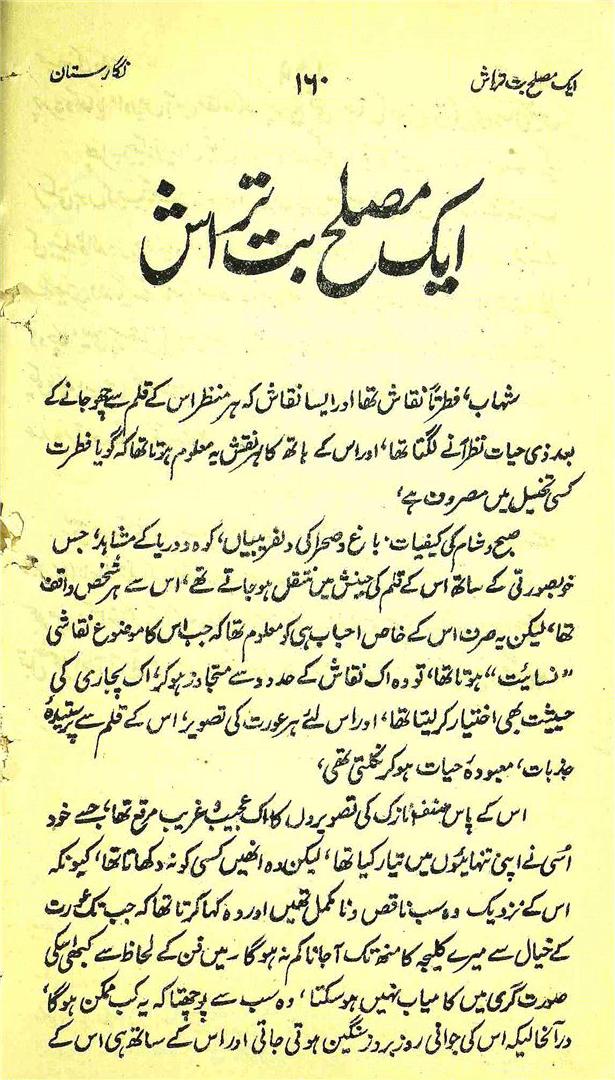 ایک مصلح بت تراش ۱۶۰ نگارستان
ایک مصلح بت تراش
شہاب، فطرتاً نقاش تھا اور ایسا نقاش کہ ہر منظر اس کے قلم سے چھو جانے کے
بعد ذی حیات نظر آنے لگتا تھا، اور اس کے ہاتھ کا ہر نقش یہ معلوم ہوتا تھا کہ گویا فطرت
کسی تخئیل میں مصروف ہے،
صبح و شام کی کیفیات، باغ و صحرا کی دلفریبیاں، کوہ و دریا کے مشاہد، جس
خوبصورتی کے ساتھ اس کے قلم کی جنبش میں منتقل ہو جاتے تھے، اس سے ہر شخص واقف
تھا، لیکن یہ صرف اس کے خاص احباب ہی کو معلوم تھا کہ جب اس کا موضوع نقاشی
”نسائیت“ ہوتا تھا، تو وہ اک نقاش کے حدود سے متجاوز ہو کر، اک پجاری کی
حیثیت بھی اختیار کر لیتا تھا، اور اس لئے ہر عورت کی تصویر، اس کے قلم سے پرستیدۂ
جذبات، معبودۂ حیات ہو کر نکلتی تھی،
اس کے پاس صنف نازک کی تصویروں کا اک عجیب و غریب مرقع تھا، جسے خود
اُسی نے اپنی تنہائیوں میں تیار کیا تھا، لیکن وہ انھیں کسی کو نہ دکھاتا تھا، کیونکہ
اس کے نزدیک وہ سب ناقص و نا مکمل تھیں اور وہ کہا کرتا تھا کہ جب تک عورت
کے خیال سے میرے کلیجہ کا منھ تک آ جانا کم نہ ہوگا میں فن کے لحاظ سے کبھی اسکی
صورت گری میں کامیاب نہیں ہو سکتا، وہ سب سے پوچھتا کہ یہ کب ممکن ہوگا،
درآنحالیکہ اس کی جوانی روز بروز سنگین ہوتی جاتی اور اس کے ساتھ ہی اس کے